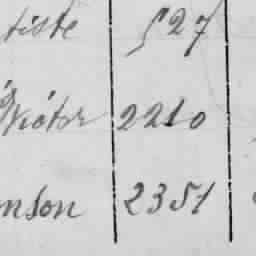 tiste 527
Victor 2210
nson 2351